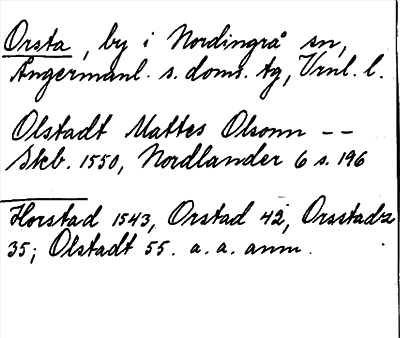 Orsta, by i Nordingrå sn,
Ångermanl. s. doms. tg, Vrnl. l.
Olstadt Mattes Olsonn --
Skb. 1550, Nordlander 6 s. 196
Horstad 1543, Orstad 42, Orsstadz
35; Olstadt 55. a. a. anm.